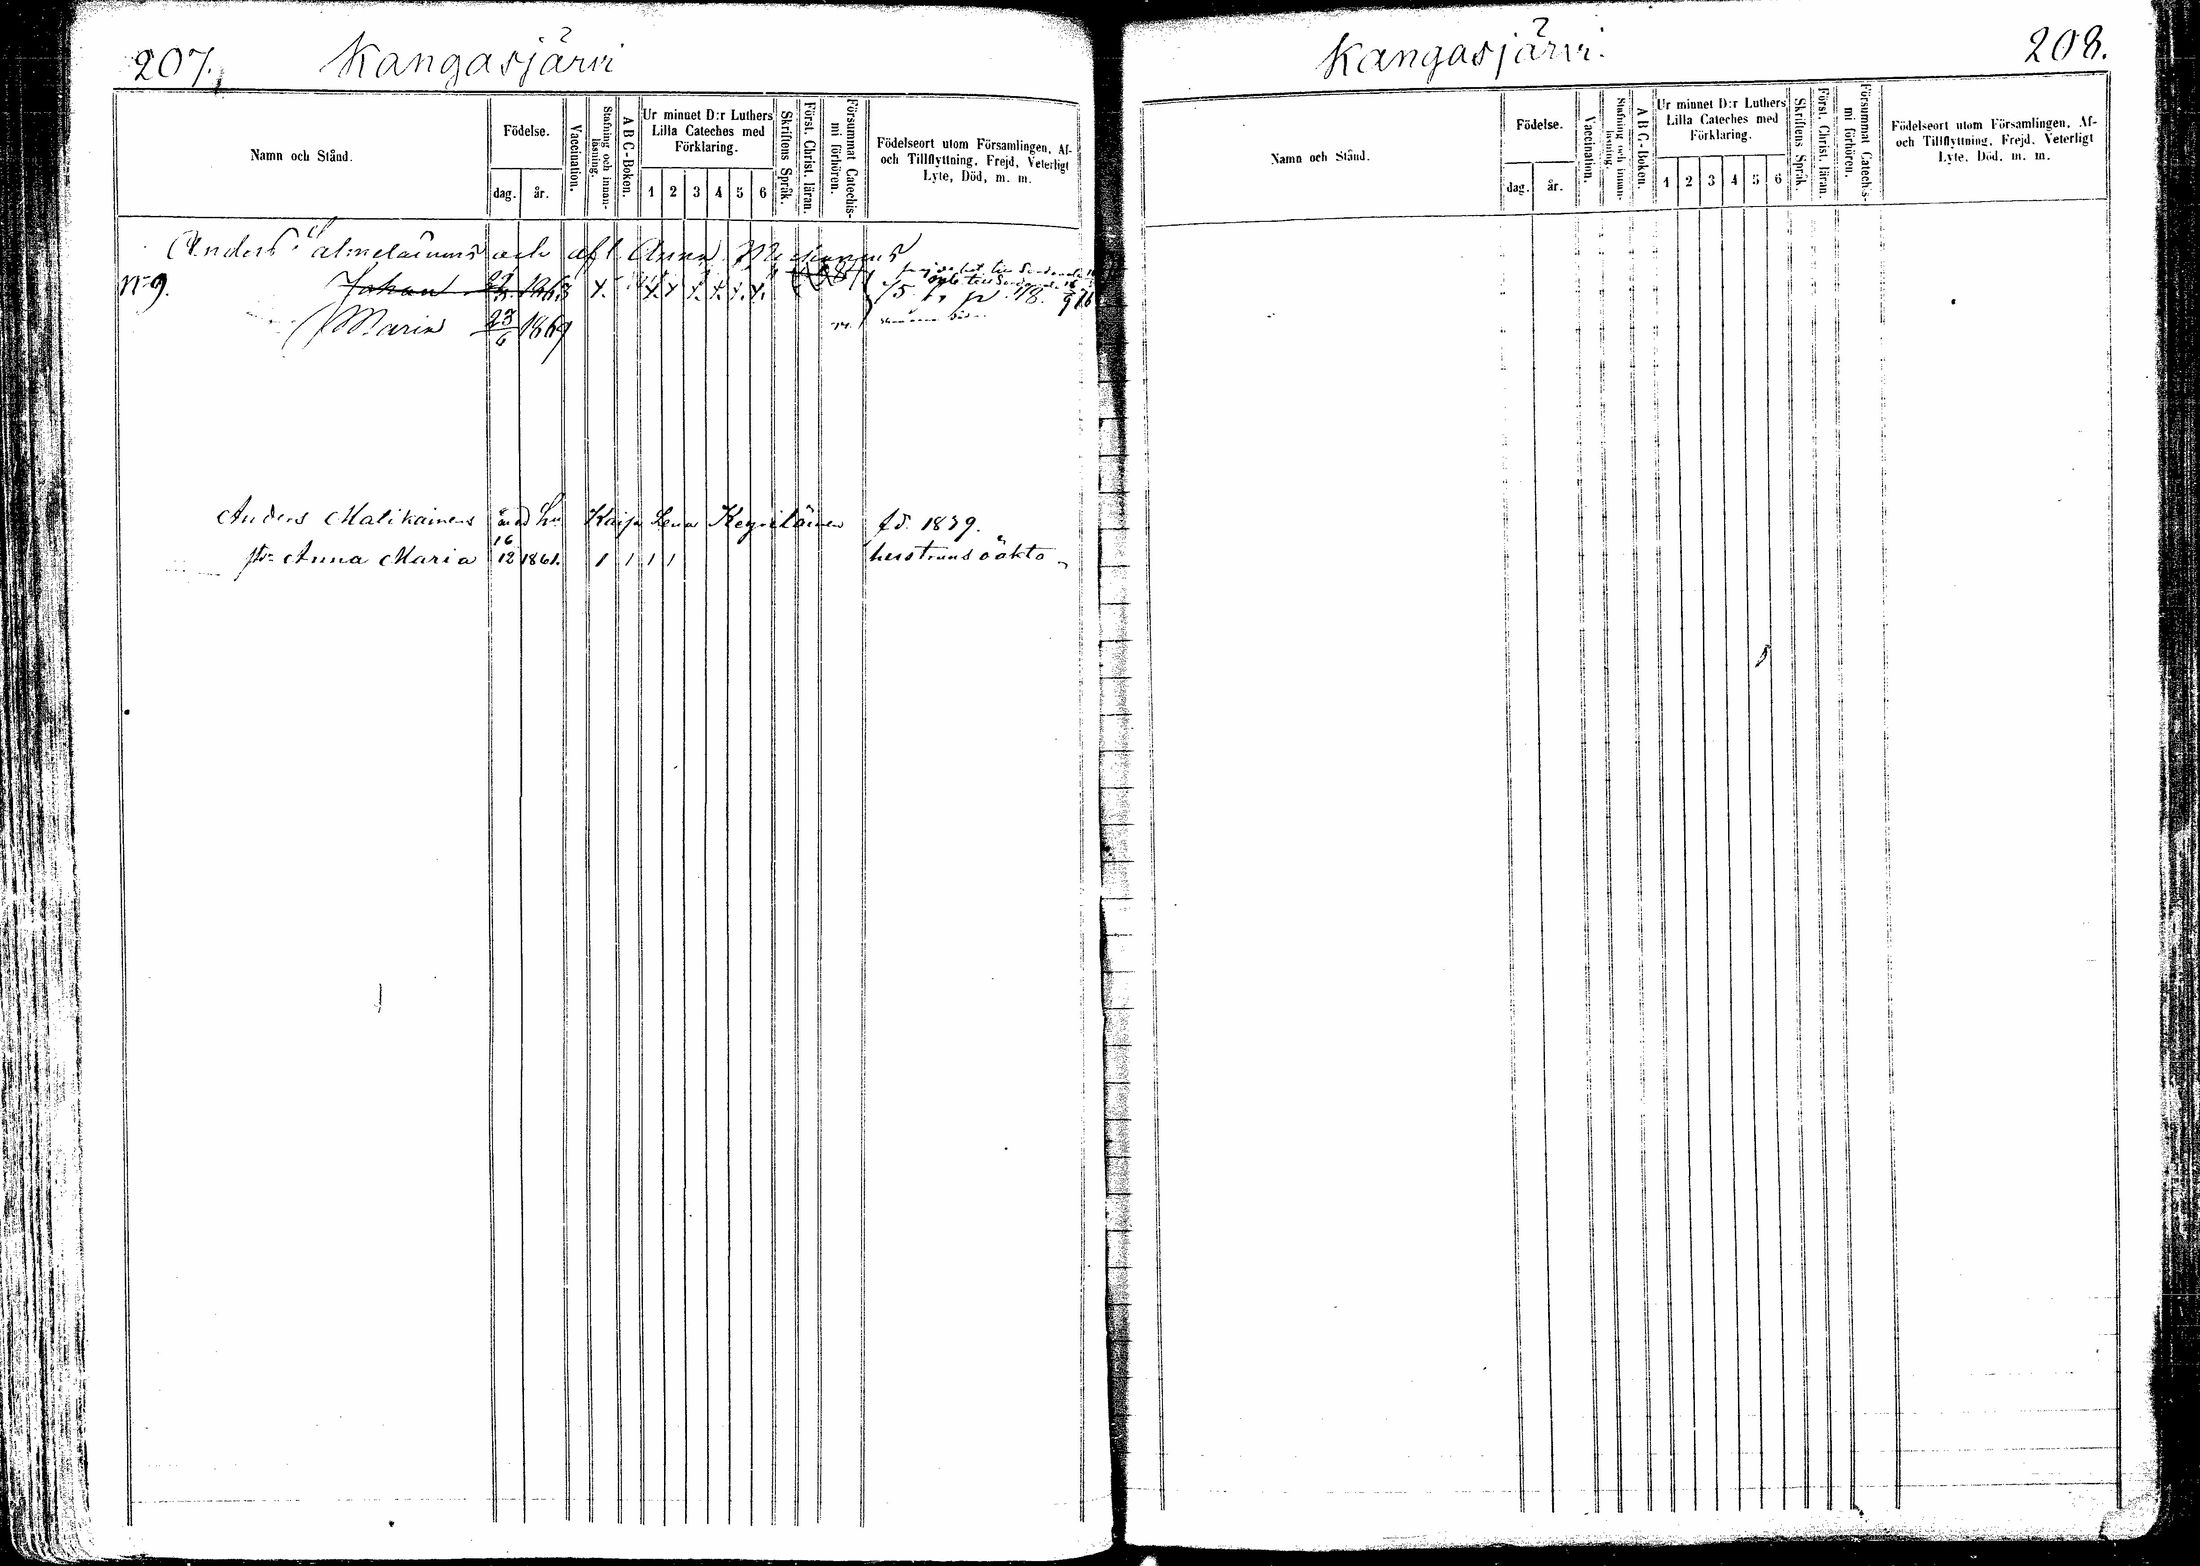 207. Kangasjärvi
Namn och Stånd.
Födelse.
dag. år.
Vaccination.
Stafning och innan-läsning.
A B C-Boken.
Ur minnet D:r Luthers
Lilla Cateches med
Förklaring.
1 2 3 4 5 6
Skriftens Språk.
Först. Christ. läran.
Försummat Catechis-mi förhören.
Födelseort utom Församlingen, Af-
och Tillflyttning, Frejd, Veterligt
Lyte, Död, m. m.
Anders och afl Anna
N:o 9. Johan 1863
Maria 23/6 1869
Anders Malikainens and Hu Kaisa Lena fd. 1839.
Anna Maria 16/12 1861. hustruns oäkta
Kangasjärvi. 208.
Namn och Stånd.
Födelse.
dag. år.
Vaccination.
Stafning och innan-läsning.
A B C-Boken.
Ur minnet D:r Luthers
Lilla Cateches med
Förklaring.
1 2 3 4 5 6
Skriftens Språk.
Först. Christ. läran.
Försummat Catechis-mi förhören.
Födelseort utom Församlingen, Af-
och Tillflyttning, Frejd, Veterligt
Lyte, Död, m. m.